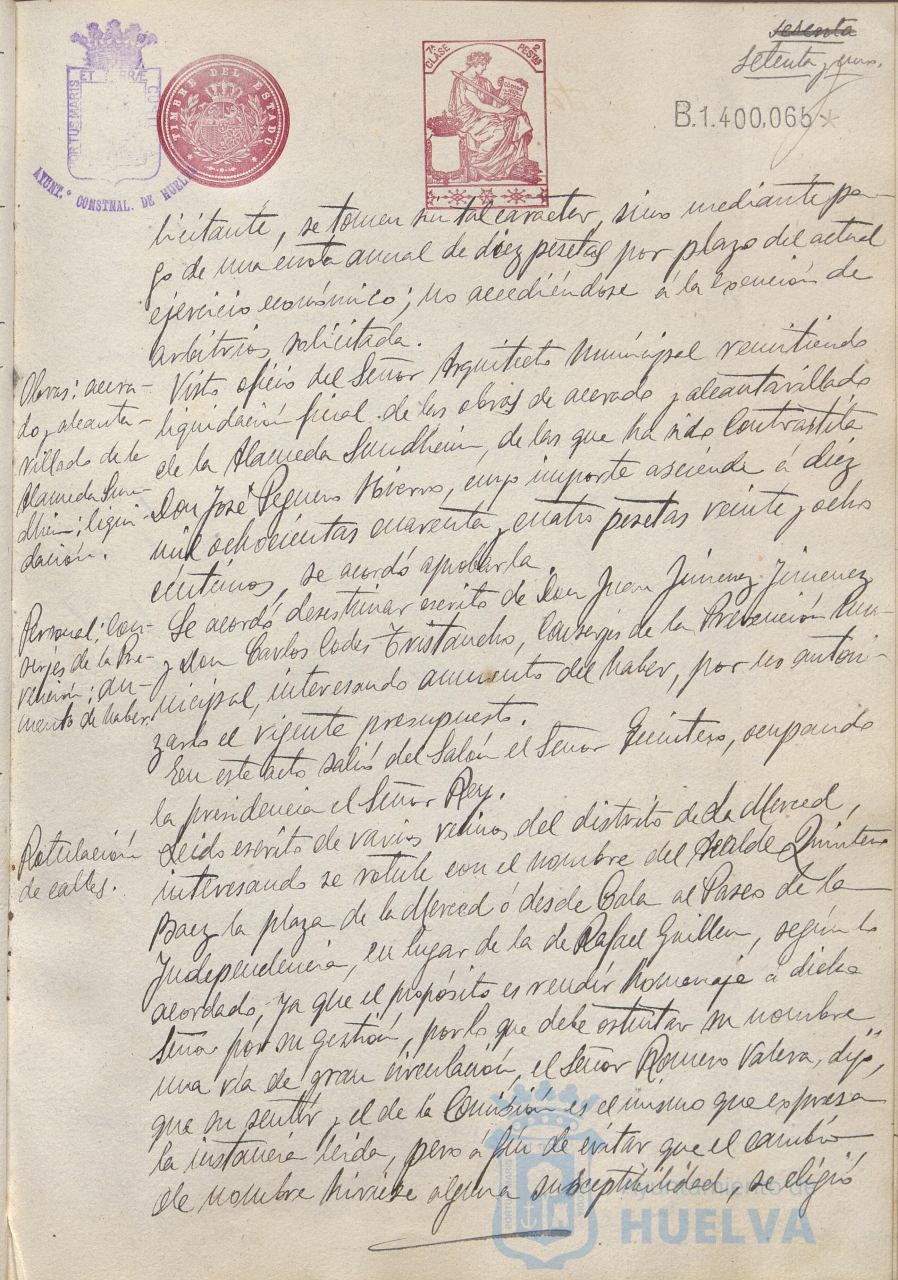 sesenta
setenta y uno.
B.1.400,065
ET TERRÆ
PORTUS MARIS
AYUNT.º CONSTNAL. DE HUEL
TIMBRE DEL ESTADO
7ª CLASE
2 PESTAS
licitante, se tomen sin tal caracter, sino mediante pa-
go de una cuota anual de diez pesetas por plazo del actual
ejercicio económico; no accediéndose á la exención de
arbitrios solicitada.
Obras: acera-
do y alcanta-
rillado de la
Alameda Sun-
dheim; liqui-
dación.
Visto oficio del Señor Arquitecto Municipal remitiendo
liquidación final de las obras de acerado y alcantarillado
de la Alameda Sundheim, de las que ha sido Contratista
Don José Peguero Hierro, cuyo importe asciende á diez
mil ochocientas cuarenta y cuatro pesetas veinte y ocho
céntimos, se acordó aprobarla.
Personal; con-
serjes de la Pre-
vención; au-
mento de haber.
Se acordó desestimar escrito de Don Juan Jimenez Jimenez
y Don Carlos Codes Tristancho, Conserjes de la Prevención Mu-
nicipal, interesando aumento del haber, por no autori-
zarlo el vigente presupuesto.
En este acto salió del Salón el Señor Quintero, ocupando
la presidencia el Señor Rey.
Rotulación
de calles.
Leido escrito de varios vecinos del distrito de La Merced,
interesando se rotule con el nombre del Alcalde Quintero
Baez la plaza de la Merced ó desde Cala al Paseo de la
Independencia, en lugar de la de Rafael Guillen, según lo
acordado, ya que el propósito es rendir homenaje á dicho
Señor por su gestión, por lo que debe ostentar su nombre
una vía de gran circulación, el Señor Romero Valera, dijo,
que su sentir y el de la Comisión es el mismo que expresa
la instancia leida, pero á fin de evitar que el cambio
de nombre hiriese alguna susceptibilidad, se eligió
Ayuntamiento de
HUELVA